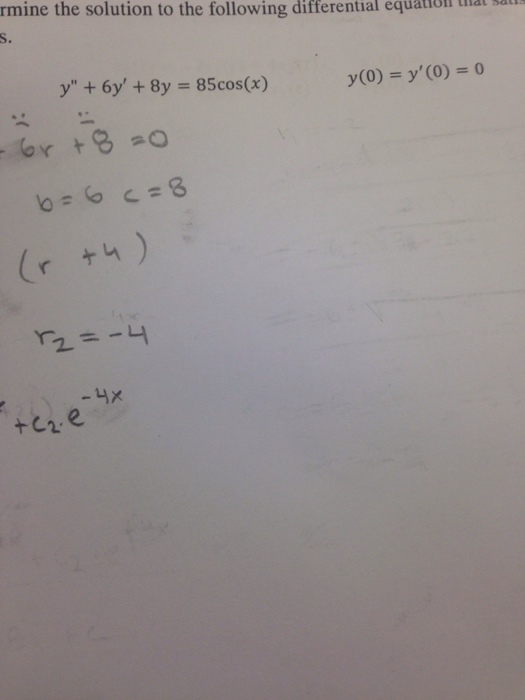 rmine the solution to the following differential equation that
s.
y" + 6y' + 8y = 85cos(x) y(0) = y'(0) = 0
6r + 8 = 0
b = 6 c = 8
(r + 4)
r₂ = -4
+ c₂ · e^-4x